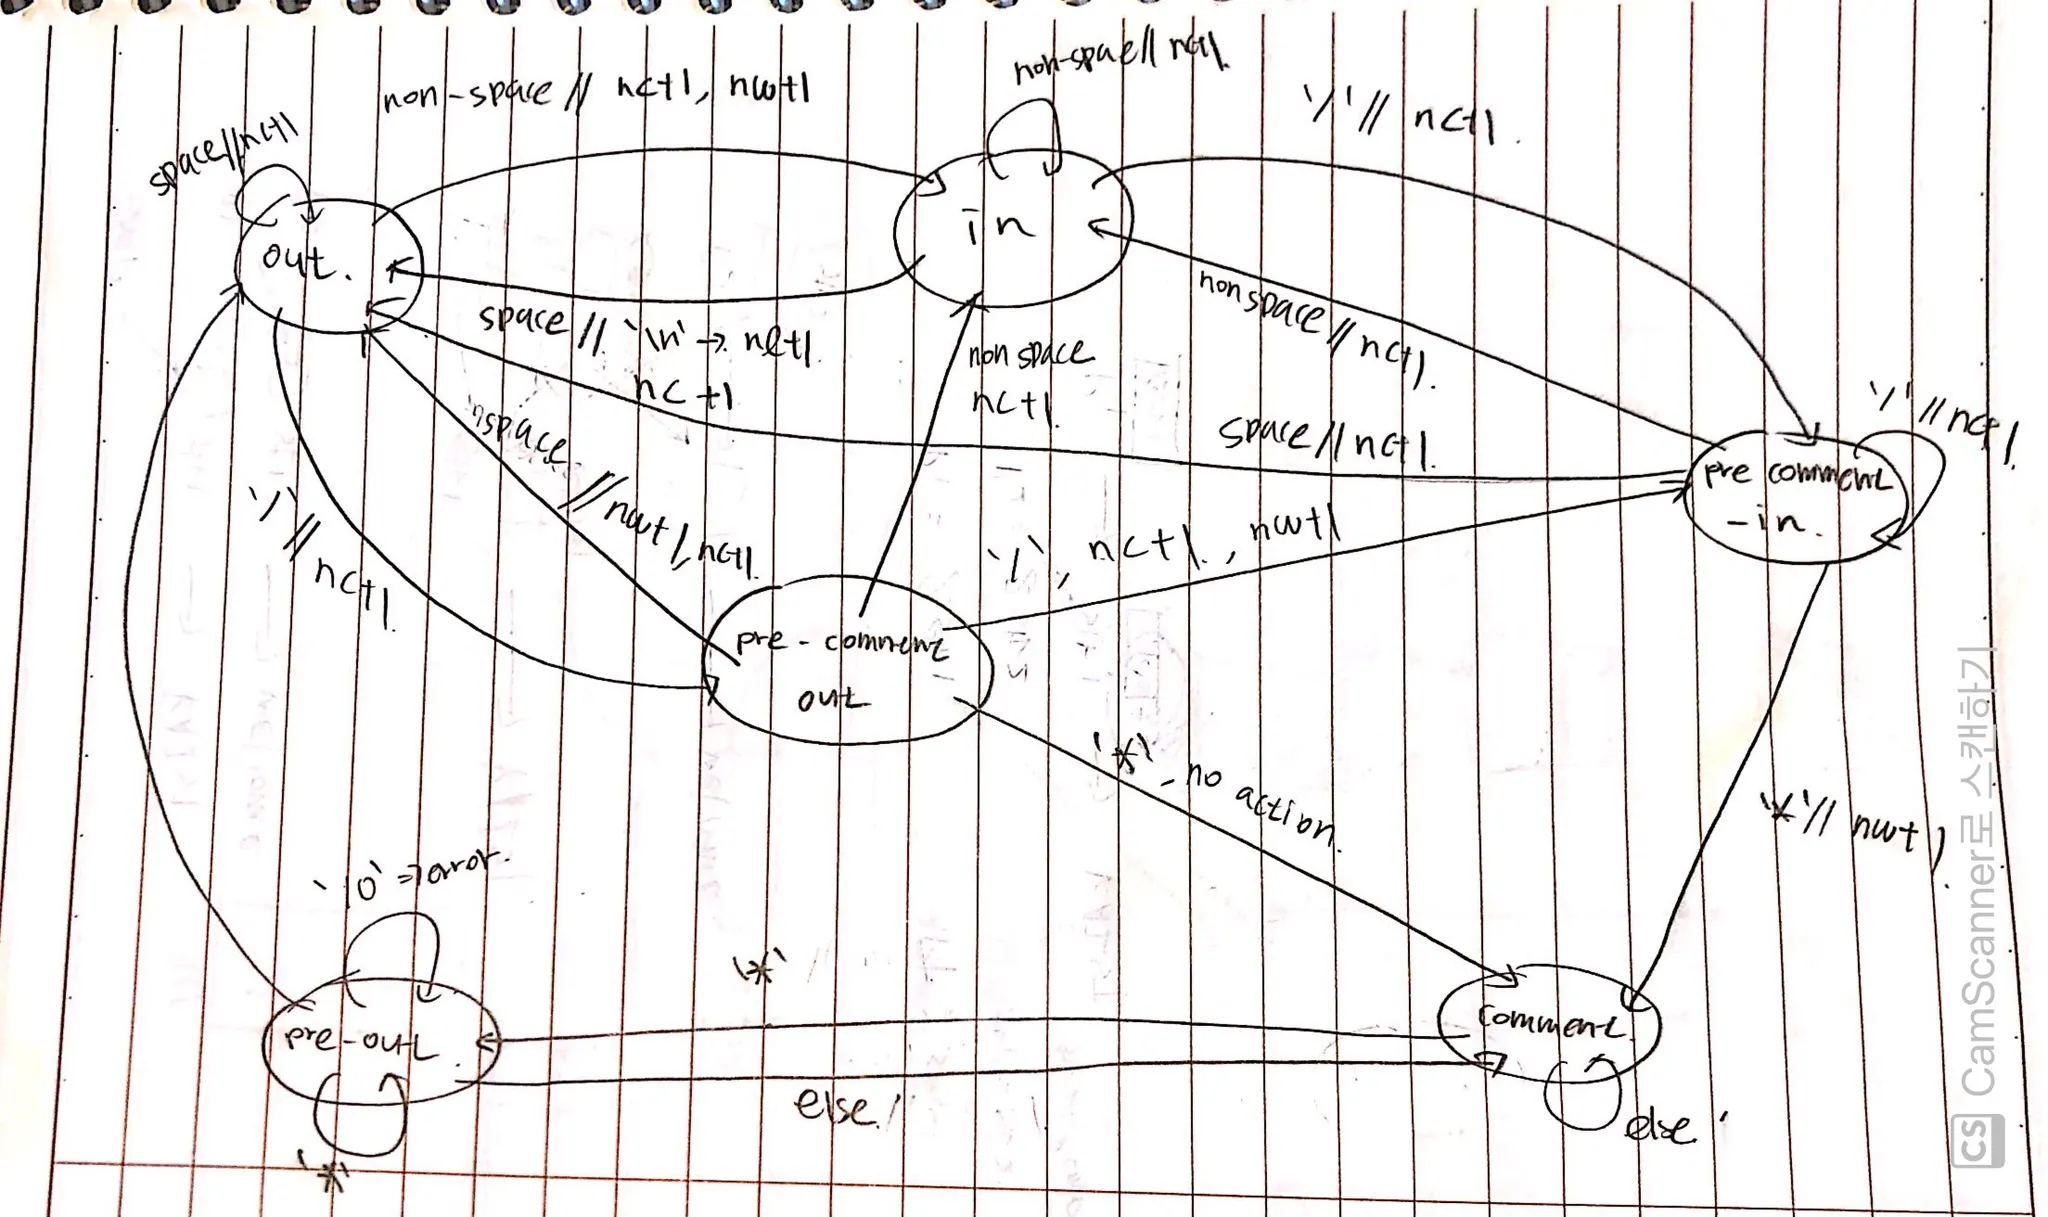 non-space // nc+1, nw+1
non-space // nc+1.
'/' // nc+1.
space // nc+1
out.
in
space // '\n' → nl+1.
nc +1
nonspace // nc+1.
non space
nc+1.
'/' // nc+1.
space // nc+1.
pre comment
-in.
space // nw+1, nc+1.
'/' // nc+1.
'/', nc+1, nw+1
pre-comment
out
'*', no action.
'*' // nw+1.
'\0' => error.
'*'
pre-out.
comment.
else.
else.
'*'
CS CamScanner로 스캔하기